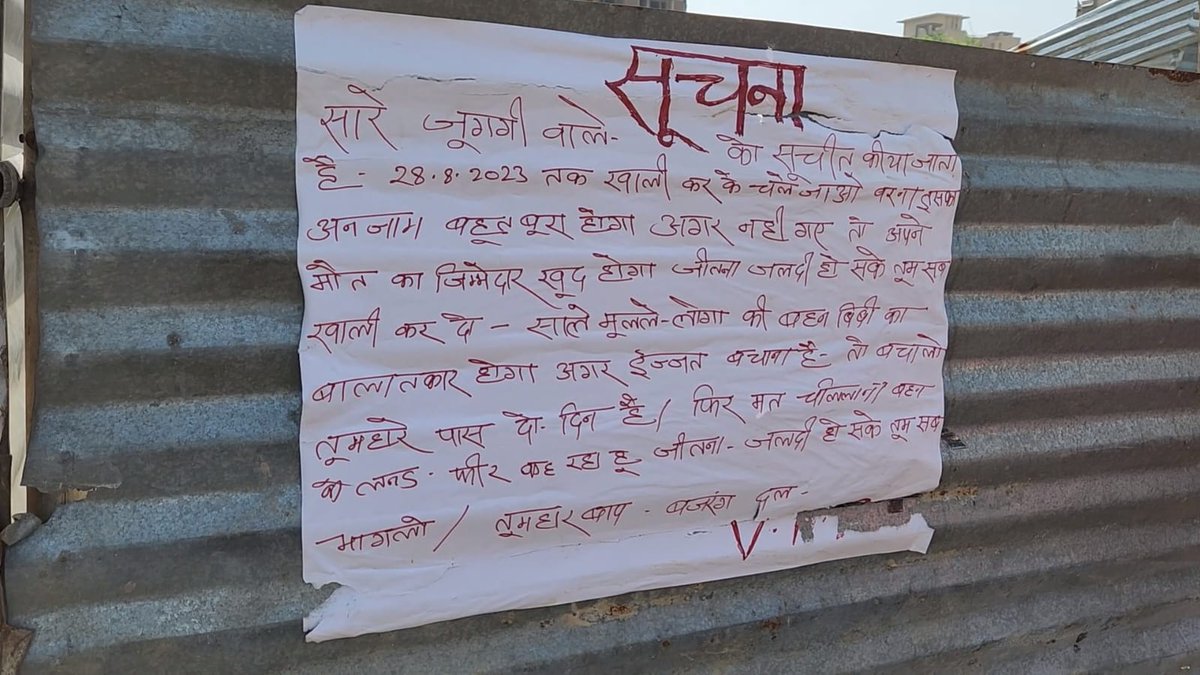 सूचना
सारे जूगगी वाले- को सूचीत कीया जाता
है - 28.8.2023 तक खाली कर के चले जाओ वरना इसका
अनजाम बहूत बूरा होगा अगर नही गए तो अपने
मौत का जिम्मेदार खूद होगा जीतना जलदी हो सके तूम सब
खाली कर दो - साले मूलले-लोगो की बहन बिबी का
बालातकार होगा अगर ईज्जत बचाना है- तो बचालो
तूमहारे पास दो- दिन है/ फिर मत चीललाना बहन
के लनड - फीर कह रहा हू जीतना - जलदी हो सके तूम सब
भागलो / तूमहार बाप - बजरंग दल -
V.